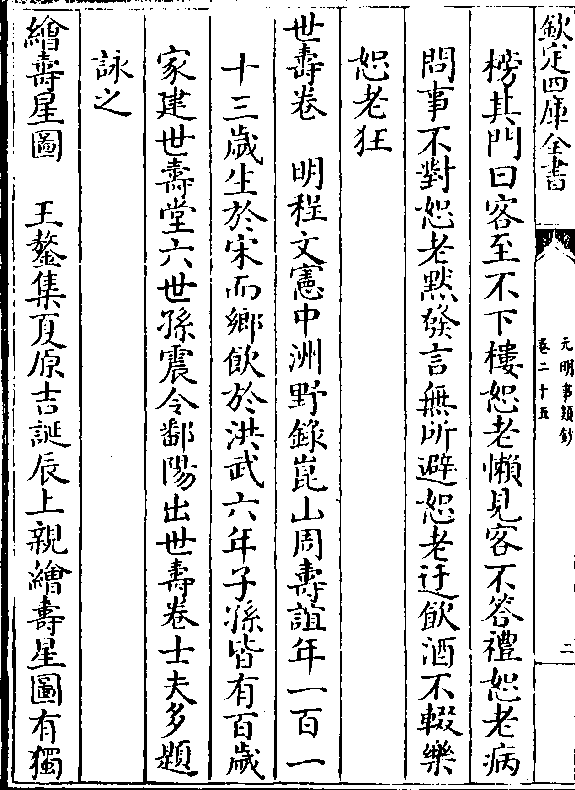 欽定四庫全書
元明事類鈔
卷二十五
二
榜其門曰客至不下樓恕老懶見客不答禮恕老病
問事不對恕老黙發言無所避恕老迂飲酒不輟樂
恕老狂
世壽卷　明程文憲中洲野錄崑山周壽誼年一百一
十三歲生於宋而鄉飲於洪武六年子孫皆有百歲
家建世壽堂六世孫震令鄱陽出世壽卷士夫多題
詠之
繪壽星圖　王鏊集夏原吉誕辰上親繪壽星圖有獨